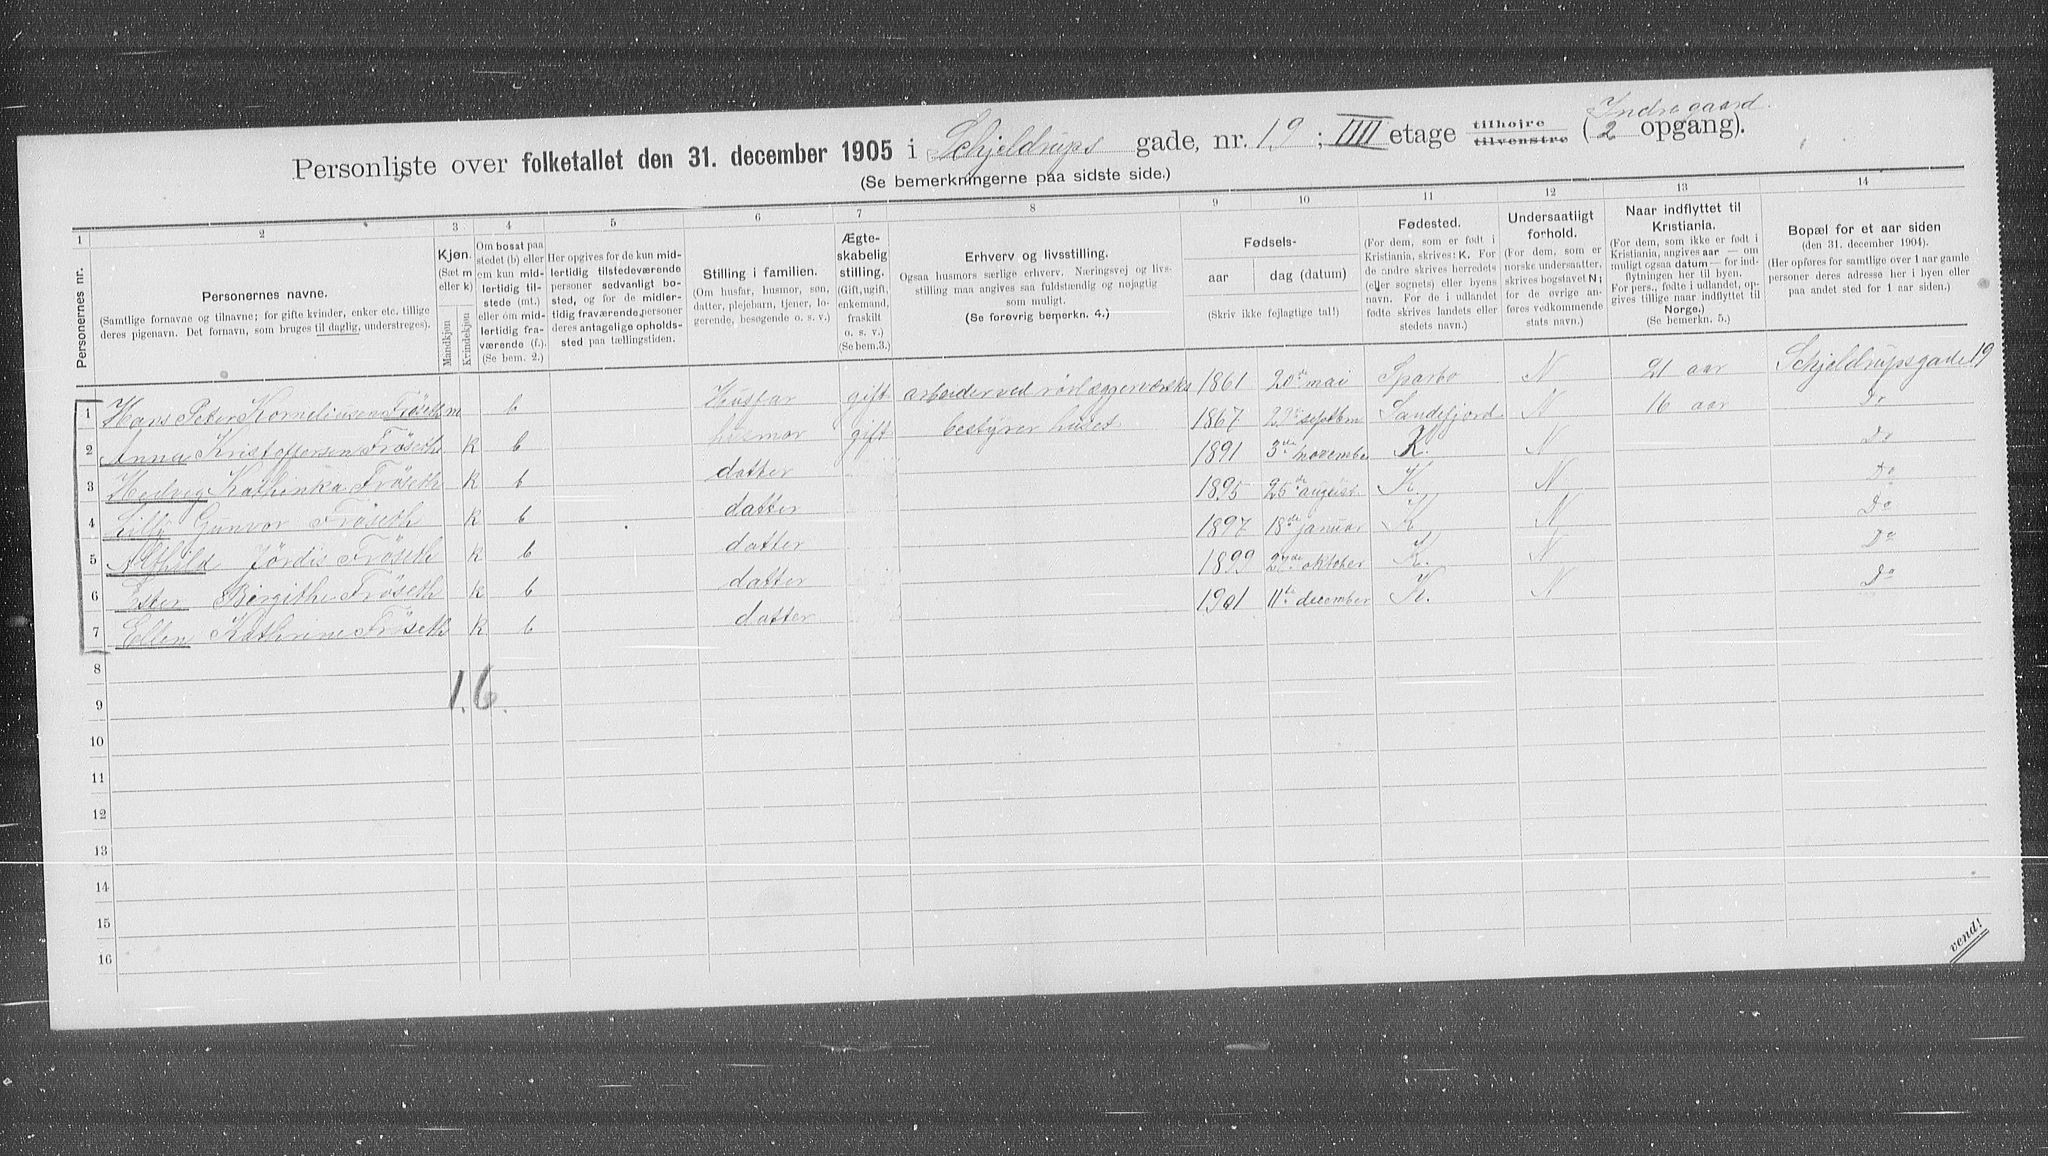 Indregaard.
Personliste over folketallet den 31. december 1905 i Schjeldrups gade, nr. 19; IIII etage tilhøjre tilvenstre (2 opgang).
(Se bemerkningerne paa sidste side.)
1 2 3 4 5 6 7 8 9 10 11 12 13 14
Personernes nr.
Personernes navne.
(Samtlige fornavne og tilnavne; for gifte kvinder, enker etc. tillige deres pigenavn. Det fornavn, som bruges til daglig, understreges).
Kjøn.
(Sæt m eller k)
Mandkjøn
Kvindekjøn
Om bosat paa stedet (b) eller om kun midlertidig tilstede (mt.) eller om midlertidig fraværende (f.). (Se bem. 2.)
Her opgives for de kun midlertidig tilstedeværende personer sedvanligt bosted, og for de midlertidig fraværende personer deres antagelige opholdssted paa tællingstiden.
Stilling i familien.
(Om husfar, husmor, søn, datter, plejebarn, tjener, logerende, besøgende o. s. v.)
Ægteskabelig stilling.
(Gift, ugift, enkemand, fraskilt o. s. v.) (Se bem. 3.)
Erhverv og livsstilling.
Ogsaa husmors særlige erhverv. Næringsvej og livsstilling maa angives saa fuldstændig og nøjagtig som muligt.
(Se forøvrig bemerkn. 4.)
Fødsels-
aar
dag (datum)
(Skriv ikke fejlagtige tal!)
Fødested.
(For dem, som er født i Kristiania, skrives: K. For de andre skrives herredets (eller sognets) eller byens navn. For de i udlandet fødte skrives landets eller stedets navn.)
Undersaatligt forhold.
(For dem, som er norske undersaatter, skrives bogstavet N; for de øvrige anføres vedkommende stats navn.)
Naar indflyttet til Kristiania.
(For dem, som ikke er født i Kristiania, angives aar — om muligt ogsaa datum — for indflytningen her til byen. For pers., fødte i udlandet, opgives tillige naar indflyttet til Norge.)
(Se bemerkn. 5.)
Bopæl for et aar siden
(den 31. december 1904).
(Her opføres for samtlige over 1 aar gamle personer deres adresse her i byen eller paa andet sted for 1 aar siden.)
1 Hans Peter Korneliusen Fröseth m b husfar gift arbeider ved rörlæggerværksº 1861 20de mai Sparbo N 21 aar Schjeldrupsgade 19
2 Anna Kristoffersen Fröseth k b husmor gift bestyrer huset 1867 29de septbm Sandefjord N 16 aar Do
3 Hedvig Kathinka Fröseth k b datter 1891 3de november K. N Do
4 Lilli Gunvor Fröseth k b datter 1895 25de august K. N Do
5 Alfhild Jördis Fröseth k b datter 1897 18de januar K N Do
6 Ester Birgithe Fröseth k b datter 1899 27de oktober K. N Do
7 Ellen Kathrine Fröseth k b datter 1901 11te december K. N Do
8
1.6.
9
10
11
12
13
14
15
16
vend!